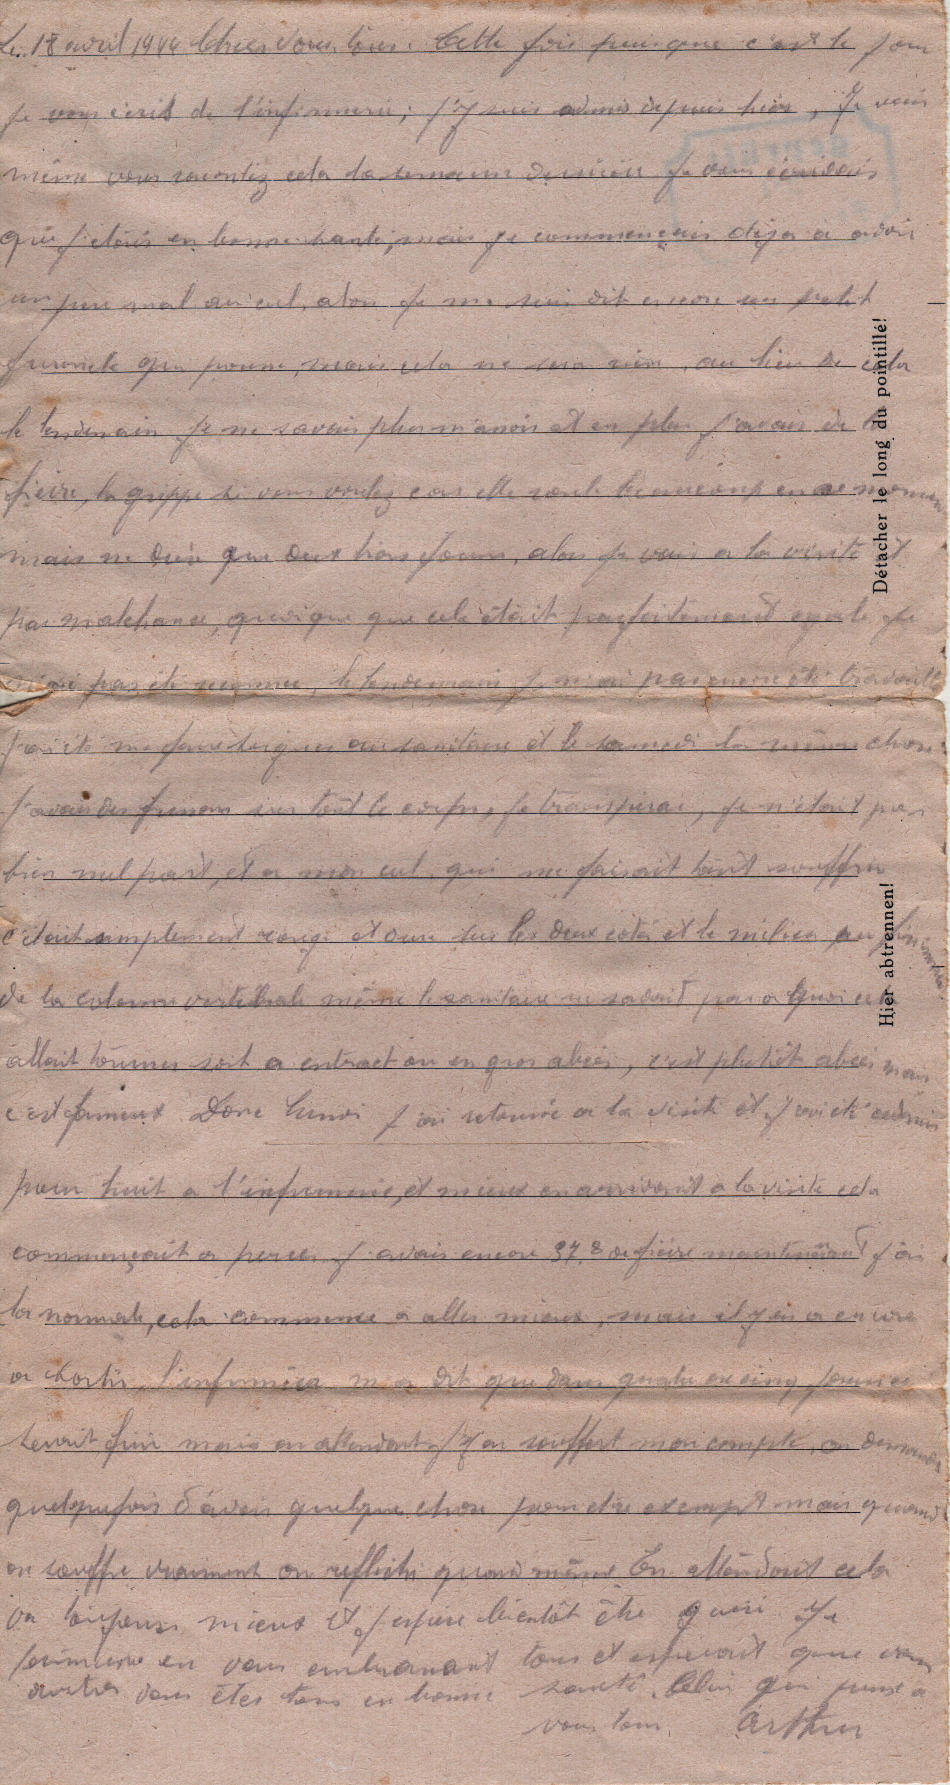 Le 18 avril 1944 Chers Vous tous. Cette fois puisque c'est le jour
je vous écris de l'infirmerie; j'y suis admis depuis hier, Je vais
même vous racontez cela la semaine dernière je vous écrivais
que j'étais en bonne santé, mais je commençais déja a avoir
un peu mal au cul, alors je me suis dit encore un petit
furoncle qui pousse, mais cela ne sera rien, au lieu de cela
le lendemain je ne savais plus m'assoir et en plus j'avais de la
fièvre, la grippe si vous voulez car elle roule beaucoup en ce moment
mais ne dure que deux trois jours, alors je vais a la visite et
par malchance, quoique que cela était parfaitement égale je
n'ai pas été reconnu, le lendemain je n'ai pas encore été travaillé
j'ai été me faire soigner au sanitaire et le samedi la même chose
j'avais des frissons sur tout le corps, je transpirai, je n'était pas
bien nul part, et a mon cul qui me faisait tant souffrir
c'était simplement rouge et dure sur les deux cotés et le milieu
de la colonne vertébrale même le sanitaire ne savait pas a quoi cela
allait tourner soit a entract ou en gros abcès, c'est plutôt abcès mais
c'est fameux Donc lundi j'ai retourné a la visite et j'y ai été admis
pour huit a l'infirmerie, et mieux en arrivant a la visite cela
commençait a percer j'avais encore 37.8 de fièvre maintenant j'ai
la normale, cela commence a aller mieux, mais il y en a encore
a sortir, l'infirmier m'a dit que dans quatre ou cinq jours ce
serait fini mais en attendant j'y ai souffert mon compte, on demande
quelquefois d'avoir quelque chose pour être exempt mais quand
on souffre vraiment on réfléchi quand même En attendant cela
va toujours mieux et j'espère bientôt être guéri Je
termine en vous embrassant tous et espérant que vous
autres vous êtes tous en bonne santé. Celui qui pense a
vous tous. Arthur
Détacher le long du pointillé!
Hier abtrennen!